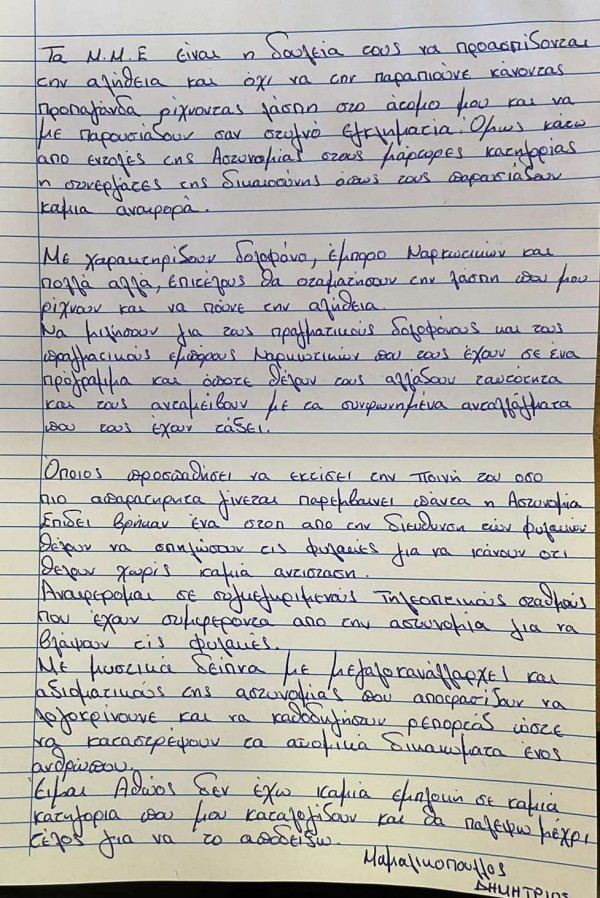 Τα Μ.Μ.Ε είναι η δουλεία τους να προασπίδονται
την αλήθεια και όχι να την παραπιούνε κάνοντας
προπαγάνδα ρίχνοντας λάσπη στο άτομο μου και να
με παρουσιάδουν σαν στυγνό εγκληματία. Όμως κάτω
από εντολές της Αστυνομίας στους μάρτυρες κατηγορίας
η συνεργάτες της δικαιοσύνης όπως τους παρασιάδουν
καμια αναφορά.
Με χαρακτηρίδουν δολοφόνο, έμπορο Ναρκωτικών και
πολλά αλλά, επιτέλους θα σταματήσουν την λάσπη που μου
ρίχνουν και να πούνε την αλήθεια.
Να μιλήσουν για τους πραγματικούς δολοφόνους και τους
πραγματικούς εμπόρους Ναρκωτικών που τους έχουν σε ένα
πρόγραμμα και όποτε θέλουν τους αλλάδουν ταυτότητα
και τους ανταμείβουν με τα συμφωνημένα ανταλλάγματα
που τους έχουν τάξει.
Όποιος προσπαθήσει να εκτίσει την ποινή του οσο
πιο απαρατηρητα γίνεται παρεμβαινει πάντα η Αστυνομία
Επιδει βρήκαν ένα στοπ απο την διευθυνση των φυλακων
θέλουν να σπιλώσουν τις φυλακές για να κάνουν οτι
θελουν χωρίς καμιά αντισταση.
Αναφερομαι σε συγκεκριμενούς Τηλεοπτικούς σταθμούς
που έχουν συμφεροντα απο την αστυνομια για να
βλάψουν τις φυλακές.
Με μυστικά δείπνα με μεγαλοκανάλλαρχες και
αδιοματικούς της αστυνομίας που αποφασίδουν να
λογοκρίνουνε και να καθοδηγήσουν ρεπορτάδ ώστε
να καταστρέψουν τα ατομικά δικαιωματα ένος
ανθρωπου.
Είμαι Αθώος δεν έχω καμιά εμπλοκή σε καμιά
κατηγορια που μου καταλογίδουν και θα παλεψω μέχρι
τέλος για να το αποδείξω.
Μαμαλικοπουλος
ΔΗΜΗΤΡΙΟΣ